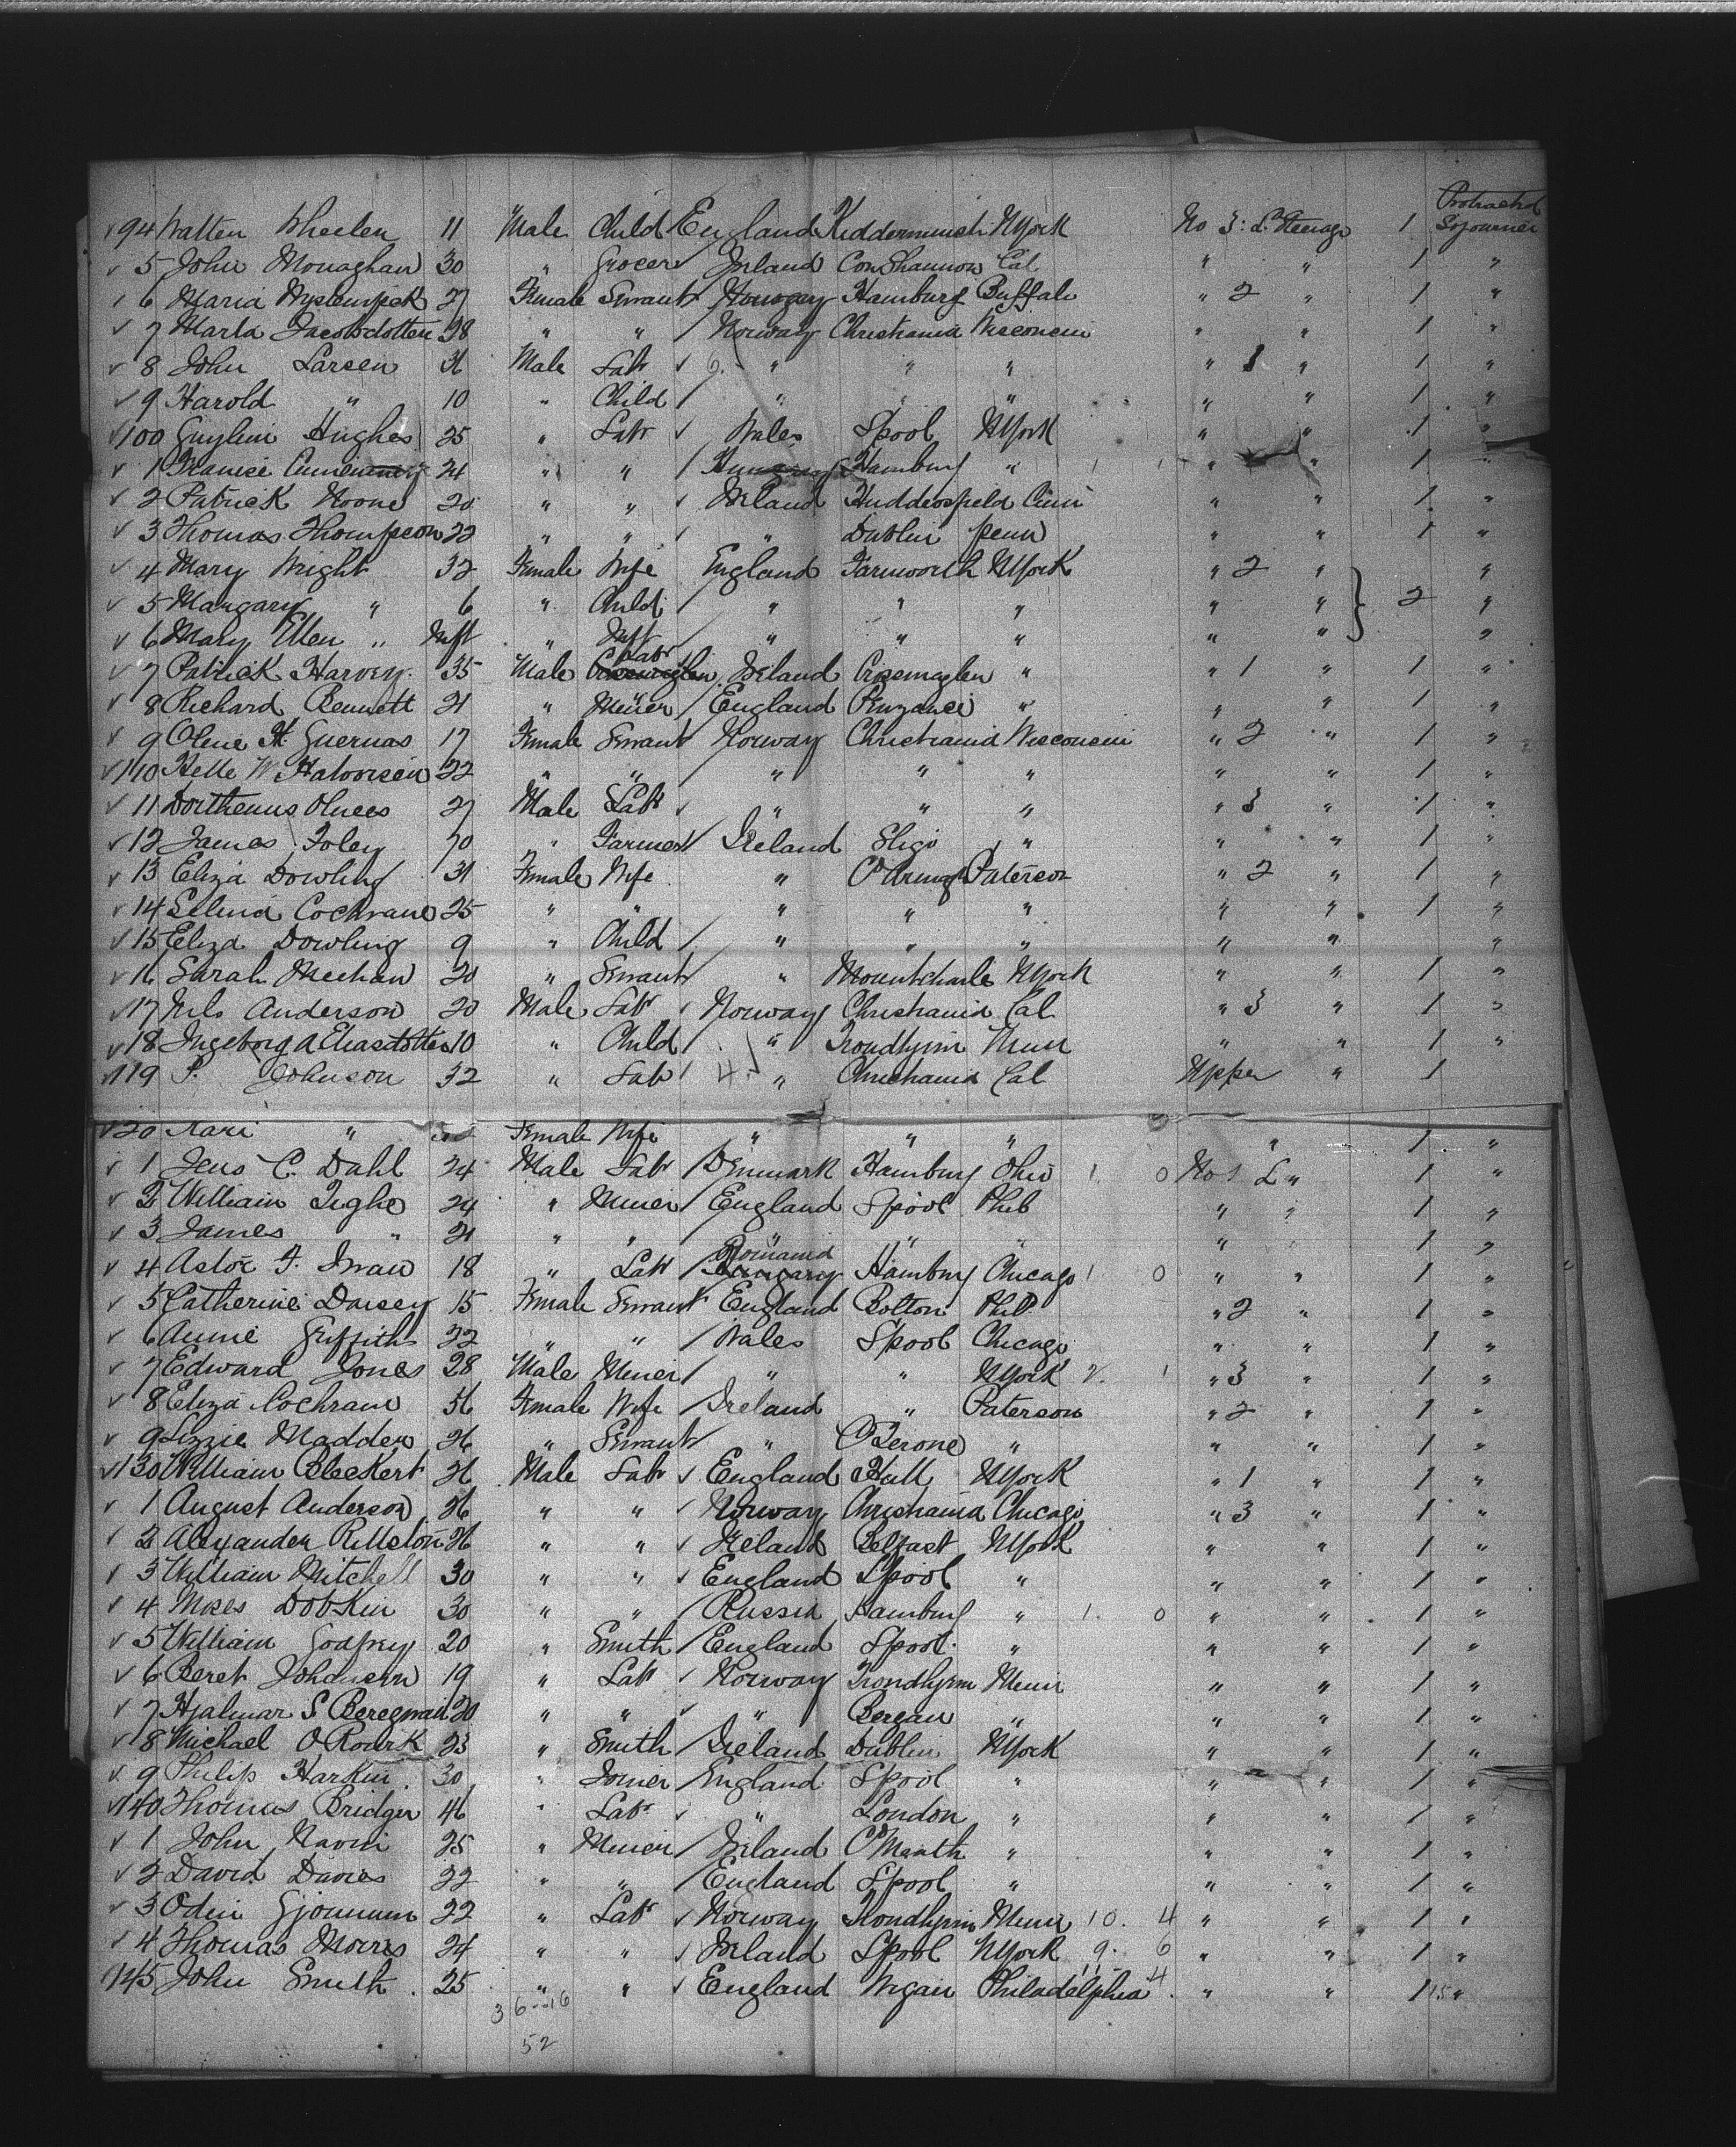 Protracted
94 Watten Wheelen 11 Male Child England Kidderminsti NYork No 3 L. Steerage 1 Sojourner
5 John Monaghan 30 " Grocer Ireland Cal " " 1 "
6 Maria 27 Female Servant Hamburg Buffalo " 2 " 1 "
7 Marta Jacobsdotten 38 " " Norway Christiania Wisconsin " " 1 "
8 John Larsen 36 Male Labr " " " " 1 " 1 "
9 Harold " 10 " Child " " " " " 1 "
100 Hughes 25 " Labr Wales Lpool NYork " " 1 "
1 24 " " Hamburg " " " 1 "
2 Patrick Noone 20 " " Ireland Huddersfield " " 1 "
3 Thomas Thompson 22 " " " Dublin Penn " " 1 "
4 Mary Wright 32 Female Wife England Farnworth NYork " 2 " "
5 Margary " 6 " Child " " " " " 2 "
6 Mary Ellen " Inft " Inft " " " " " "
Labr
7 Patrick Harvey 35 Male Crossmaglen Ireland Crossmaglen " " 1 " 1 "
8 Richard Bennett 21 " Miner England Penzance " " " 1 "
9 Olene H. Guernas 17 Female Servant Norway Christiania Wisconsin " 2 " 1 "
110 Helle W Halvorsen 22 " " " " " " " 1 "
11 Dorthenus Olnees 27 Male Labr " " " " 3 " 1 "
12 James Foley 70 " Farmer Ireland Sligo " " " 1 "
13 Eliza Dowling 31 Female Wife " Paterson " 2 " 1 "
14 Selina Cochrane 25 " " " " " " " 1 "
15 Eliza Dowling 9 " Child " " " " " "
16 Sarah Meehan 20 " Servant " Mountcharles NYork " " 1 "
17 Nils Anderson 20 Male Labr Norway Christiania Cal " 3 " 1 "
18 Ingeborg A Eliasdotter 10 " Child " Trondhjem Minn " " 1 "
119 P. Johnson 32 " Labr 4 " Christiania Cal Upper " 1
20 Kari " Female Wife " " " " 1 "
1 Jens C. Dahl 24 Male Labr Denmark Hamburg Ohio 1. 0 No 1 L " 1 "
2 William Tighe 24 " Miner England Lpool Phil " " 1 "
3 James " 21 " " " " " " 1 "
Romania
4 18 " Labr Hungary Hamburg Chicago 1 0 " " 1 "
5 Catherine Darsey 15 Female Servant England Bolton Phil " 2 " 1 "
6 Annie Griffiths 22 " " Wales Lpool Chicago " " 1 "
7 Edward Jones 28 Male Miner " " NYork 2. 1 " 3 " 1 "
8 Eliza Cochrane 56 Female Wife Ireland " Paterson " 2 " 1 "
9 Lizzie Madden 26 " Servant " " " " 1 "
130 William Bleckert 26 Male Labr England Hull NYork " 1 " 1 "
1 August Anderson 26 " " Norway Christiania Chicago " 3 " 1 "
2 Alexander Rillston 26 " " Ireland Belfast NYork " " 1 "
3 William Mitchell 30 " " England Lpool " " " 1 "
4 Moses Dobkin 30 " " Russia Hamburg " 1. 0 " " 1 "
5 William Godfrey 20 " Smith England Lpool " " " 1 "
6 Beret Johansen 19 " Labr Norway Trondhjem Minn " " 1 "
7 Hjalmar S. 20 " " " Bergen " " " 1 "
8 Michael O Rourk 23 " Smith Ireland Dublin NYork " " 1 "
9 Philip Harkin 30 " Joiner England Lpool " " " 1 "
140 Thomas Bridger 46 " Labr " London " " " 1 "
1 John Navin 25 " Miner Ireland " " " 1 "
2 David Davies 22 " " England Lpool " " " 1 "
3 Odin 22 " Labr Norway Trondhjem Minn 10. 4 " " 1 "
4 Thomas Morris 24 " " Ireland Lpool NYork 9. 6 " " 1 "
145 John Smith 25 " " England Wigan Philadelphia 4 " " 1 15 "
36 16
52